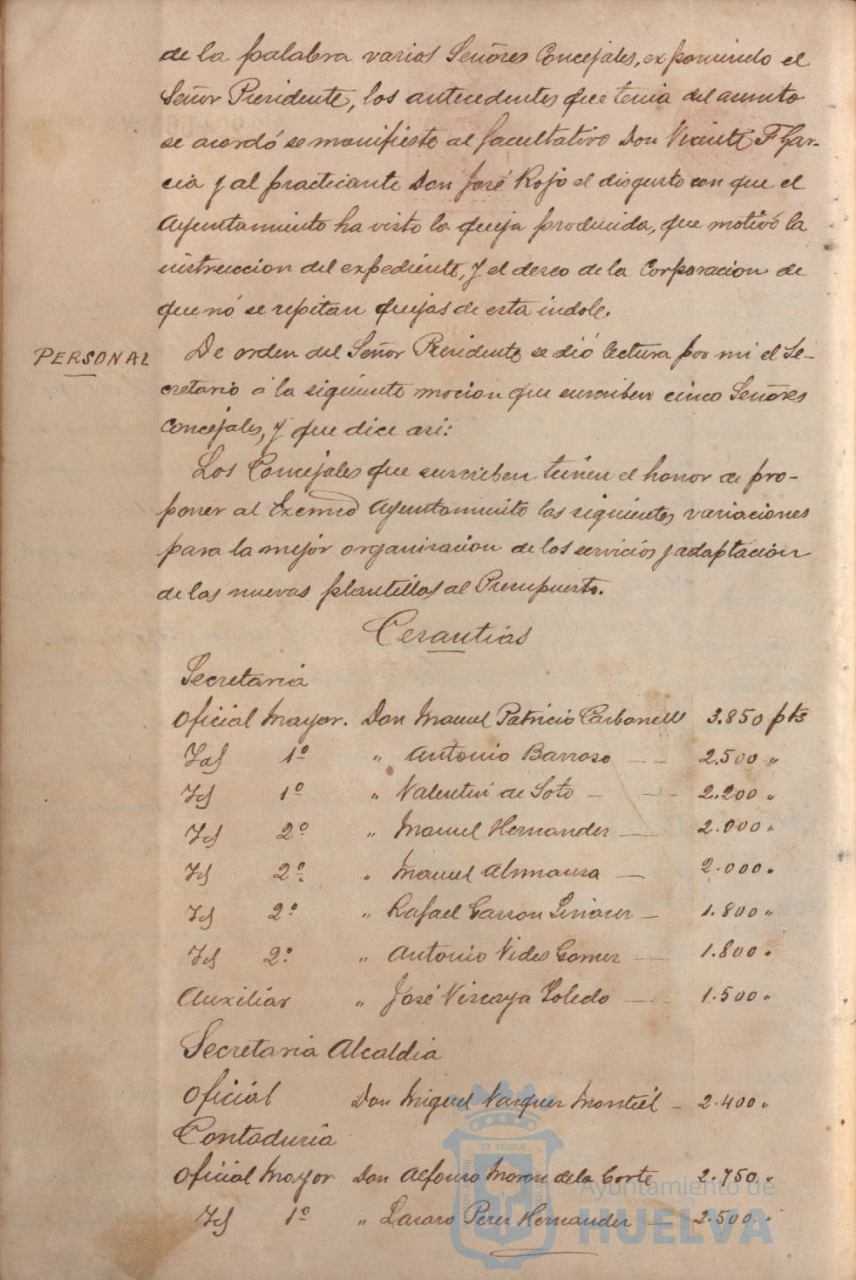 de la palabra varios Señores Concejales, exponiendo el
Señor Presidente, los antecedentes que tenia del asunto
se acordó se manifieste al facultativo Don Vicente F Gar-
cia y al practicante Don José Rojo el disgusto con que el
Ayuntamiento ha visto la queja producida, que motivó la
instruccion del expediente, y el deseo de la Corporacion de
que nó se repitan quejas de esta indole.
PERSONAL
De orden del Señor Presidente se dió lectura por mi el Se-
cretario á la siguiente mocion que suscriben cinco Señores
Concejales, y que dice asi:
Los Concejales que suscriben tienen el honor de pro-
poner al Excmo Ayuntamiento las siguientes variaciones
para la mejor organizacion de los servicios y adaptación
de las nuevas plantillas al Presupuesto.
Cesantias
Secretaria
Oficial Mayor. Don Manuel Patricio Carbonell 3.850 pts
Id 1º " Antonio Barroso — 2.500 "
Id 1º " Valentin de Soto — 2.200 "
Id 2º " Manuel Hernandez — 2.000 "
Id 2º " Manuel Almansa — 2.000 "
Id 2º " Rafael Garzon Liniares — 1.800 "
Id 2º " Antonio Vides Gomez — 1.800 "
Auxiliar " José Vizcaya Toledo — 1.500 "
Secretaria Alcaldia
Oficial Don Miguel Vazquez Montiel — 2.400 "
Contaduria
Oficial Mayor Don Alfonso Moron de la Corte 2.750 "
Id 1º " Lazaro Perez Hernandez — 2.500 "
ET TERRÆ
Ayuntamiento de
HUELVA